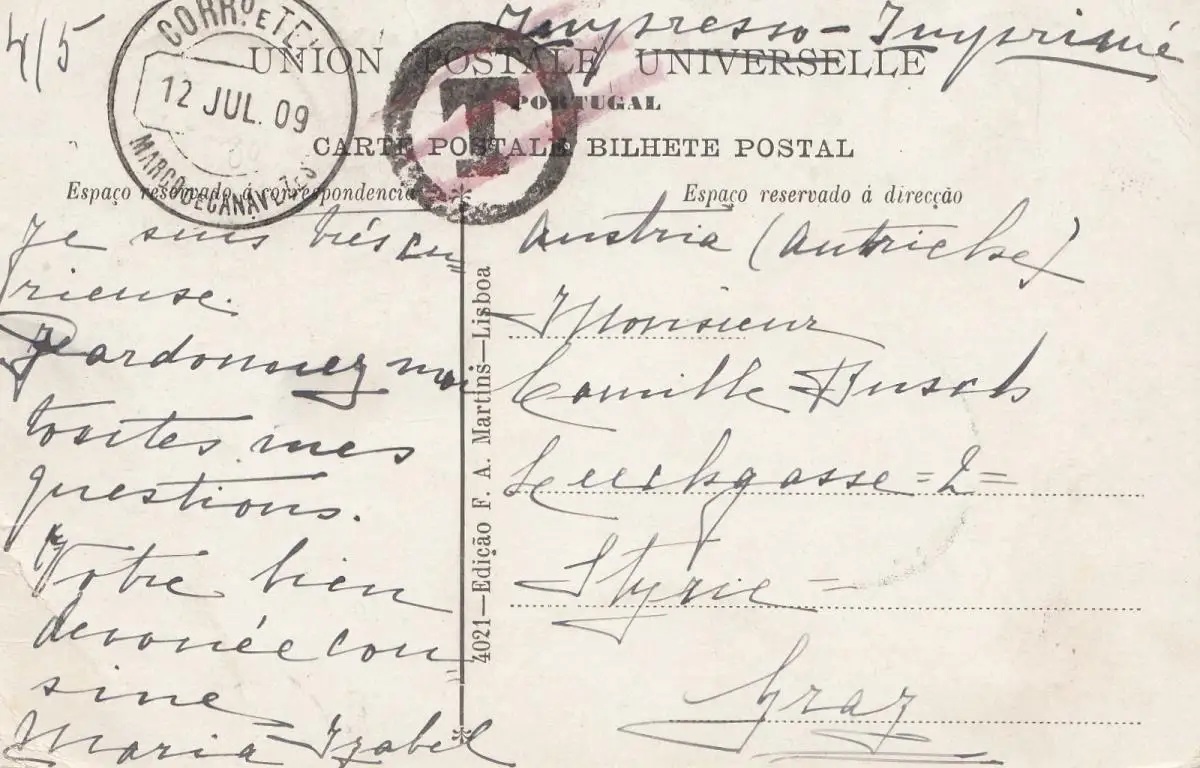 4/5
Impresso - Imprimé
CORRO. E TEL
12 JUL. 09
MARCO DE CANAVEZES
T
UNION POSTALE UNIVERSELLE
PORTUGAL
CARTE POSTALE BILHETE POSTAL
Espaço reservado á correspondencia
Je suis très cu=
rieuse.
Pardonnez moi
toutes mes
questions.
Votre bien
devouée cou=
sine
Maria Izabel
4021—Edição F. A. Martins—Lisboa
Espaço reservado á direcção
Austria (Autriche)
Monsieur
Camille Busch
Leechgasse =2=
Styrie =
Graz